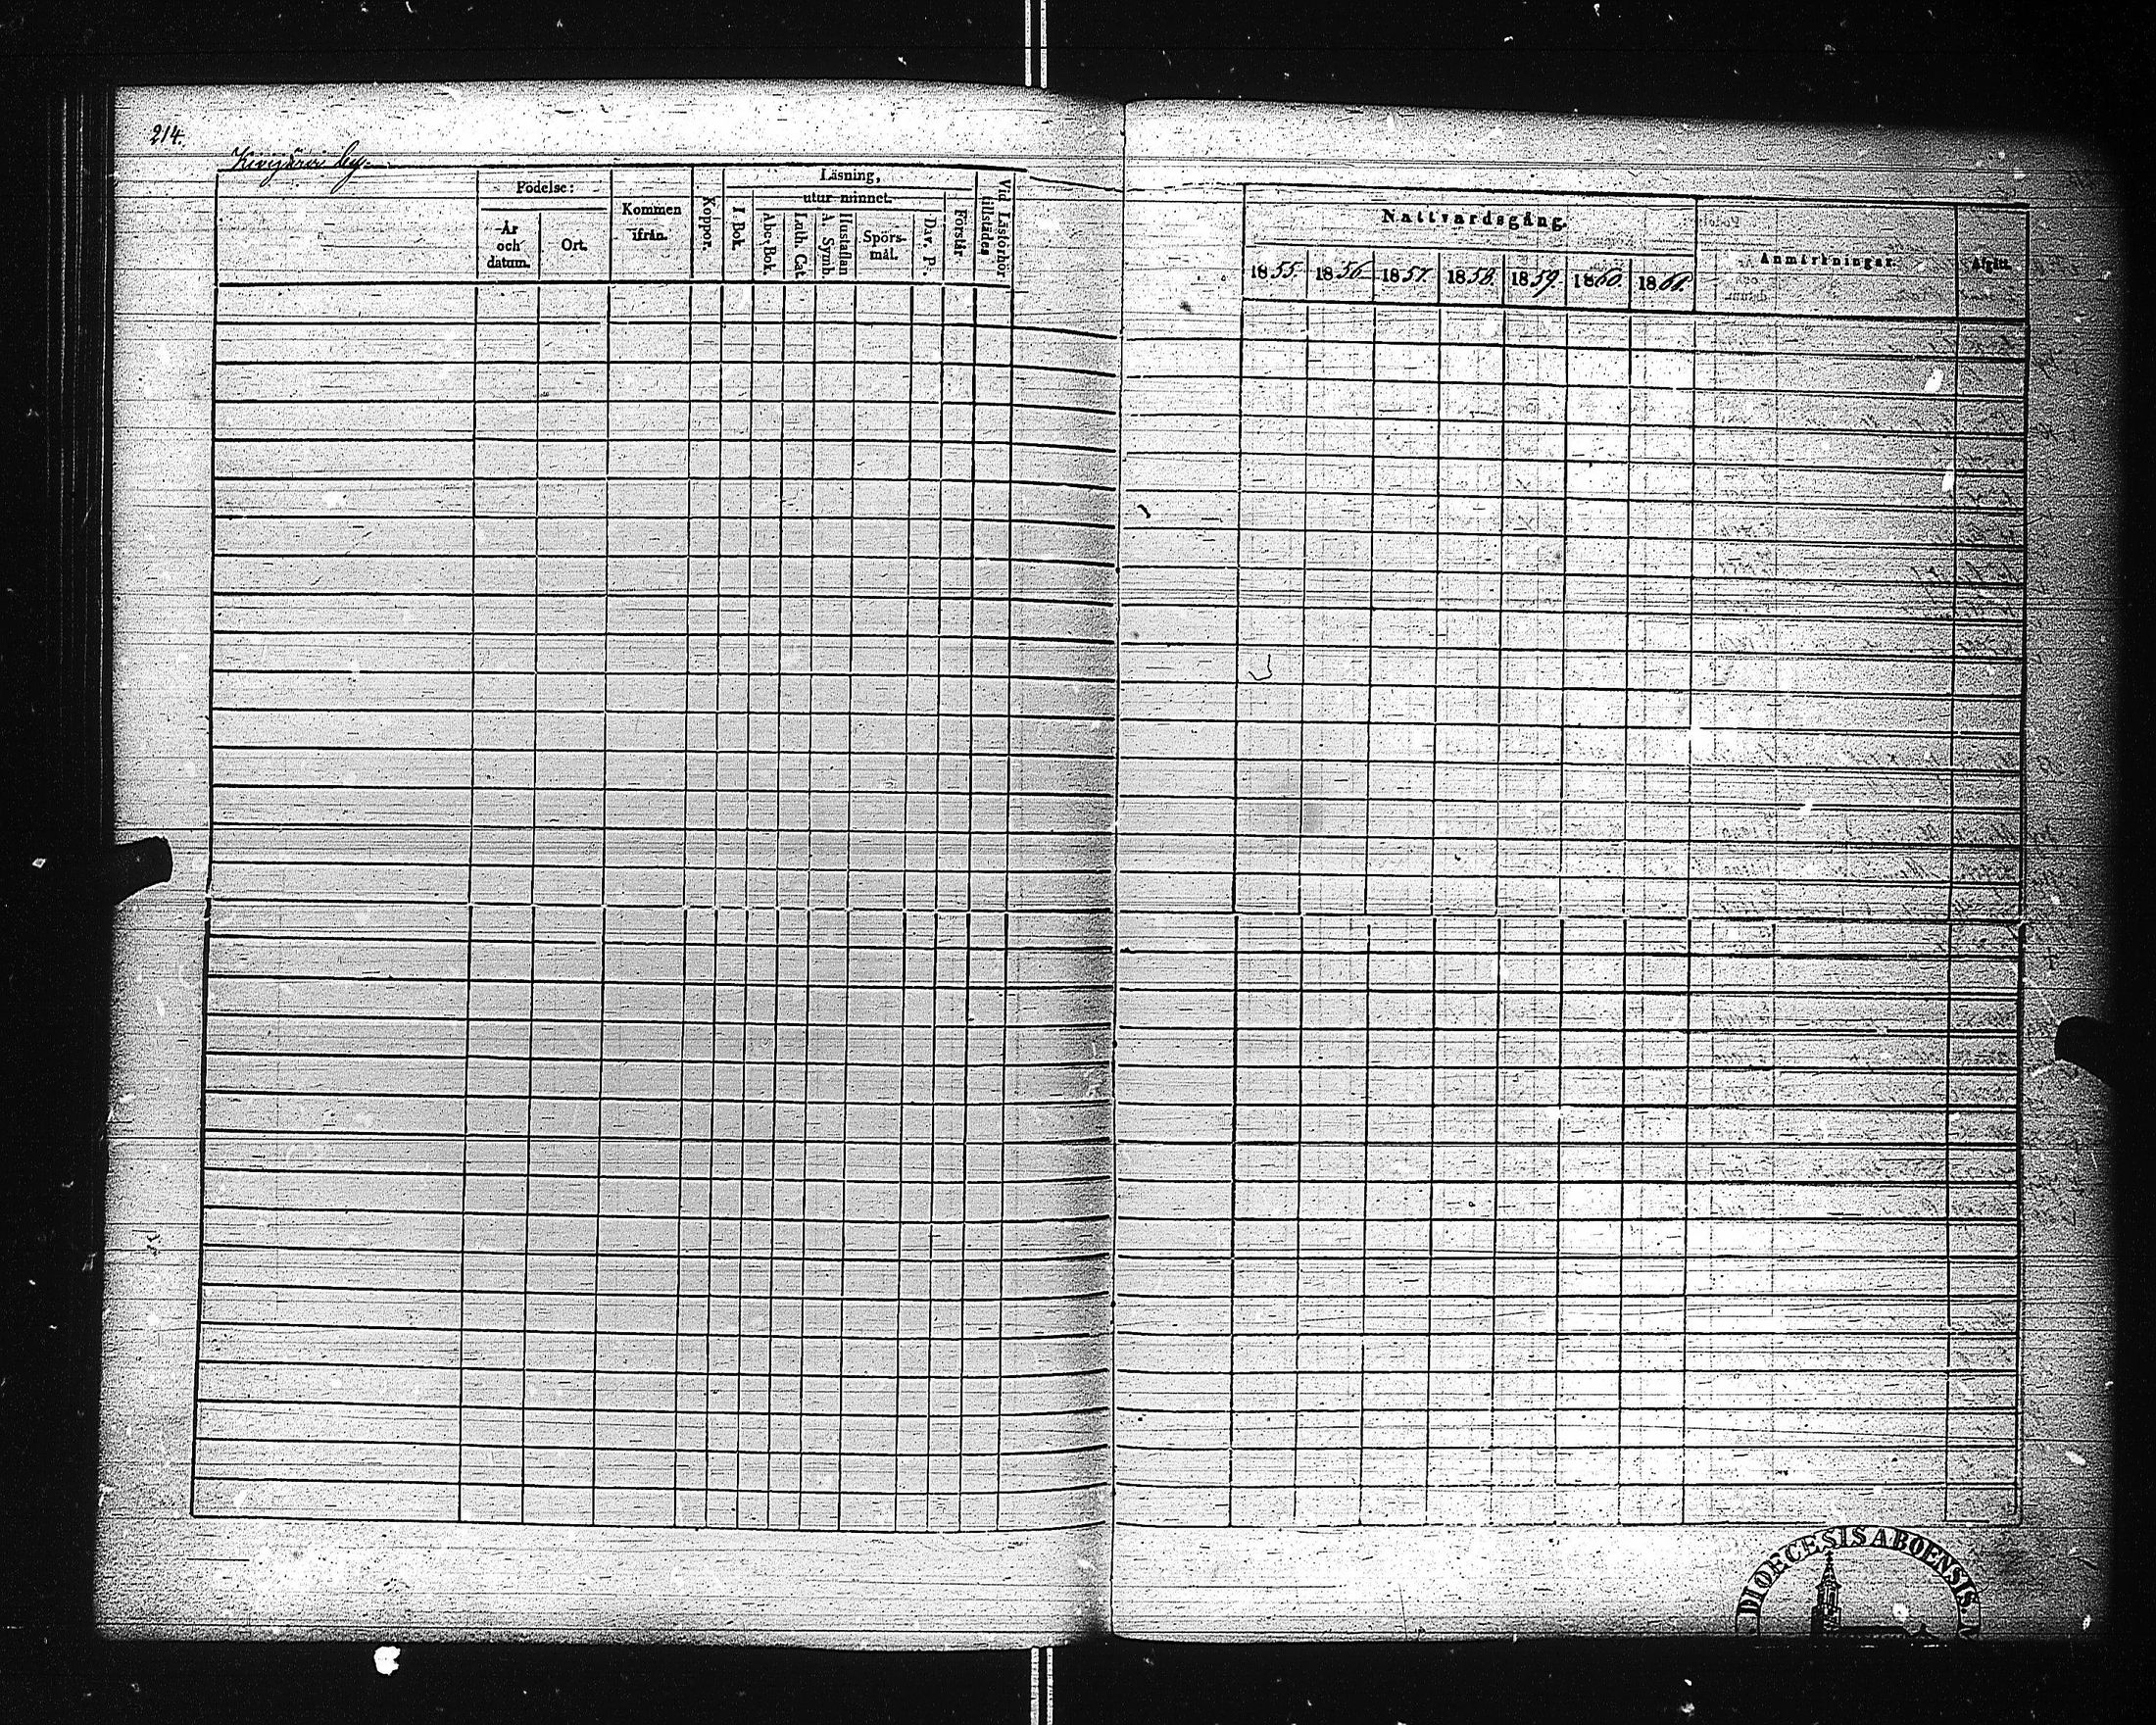 214.
Kivijärvi by.
Födelse:
År och datum.
Ort.
Kommen ifrån.
Koppor.
Läsning,
I Bok.
utur minnet.
Abc-Bok.
Luth. Cat.
A. Symb.
Hustaflan
Spörsmål.
Dav. P.
Förstår
Vid Läsförhör tillstädes
Nattvardsgång.
1855.
1856
1857.
1858.
1859.
1860.
1861.
Anmärkningar.
Afgått.
DIOECESIS ABOENSIS.